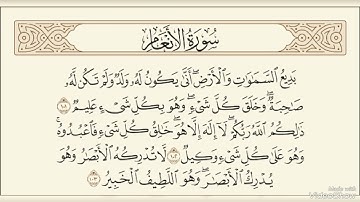 سُورَةُ الأَنْعَامِ
بَدِيعُ السَّمَٰوَٰتِ وَالْأَرْضِ ۖ أَنَّىٰ يَكُونُ لَهُ وَلَدٌ وَلَمْ تَكُن لَّهُ
صَاحِبَةٌ ۖ وَخَلَقَ كُلَّ شَيْءٍ ۖ وَهُوَ بِكُلِّ شَيْءٍ عَلِيمٌ ١٠١
ذَٰلِكُمُ اللَّهُ رَبُّكُمْ ۖ لَا إِلَٰهَ إِلَّا هُوَ ۖ خَٰلِقُ كُلِّ شَيْءٍ فَاعْبُدُوهُ ۚ
وَهُوَ عَلَىٰ كُلِّ شَيْءٍ وَكِيلٌ ١٠٢ لَّا تُدْرِكُهُ الْأَبْصَٰرُ وَهُوَ
يُدْرِكُ الْأَبْصَٰرَ ۖ وَهُوَ اللَّطِيفُ الْخَبِيرُ ١٠٣
Made with
VideoShow